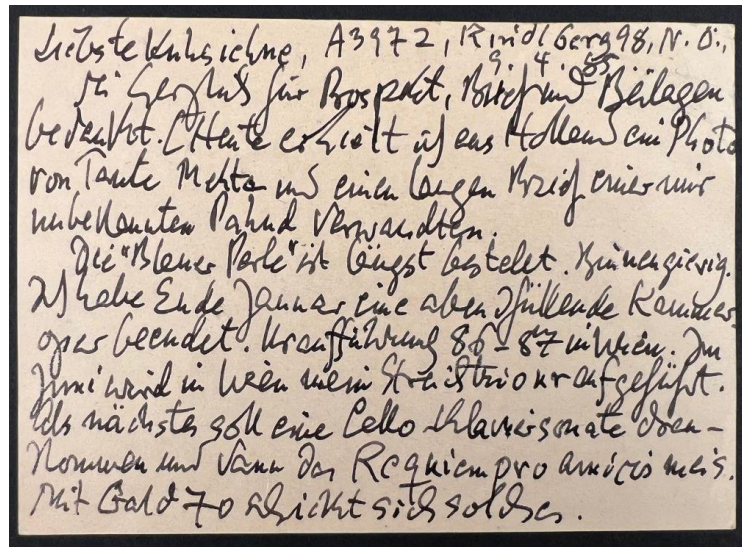 Liebste Kuhsichne, A3972, Rindlberg 98, N.Ö.,
9. 4. 85
Sei herzlichst für Prospekt, Brief und Beilagen
bedankt. Heute erhielt ich aus Holland ein Photo
von Tante Mehta und einen langen Brief einer mir
unbekannten Verwandten.
Die "Blauer Perle" ist längst bestellt. Bin neugierig.
Ich habe Ende Januar eine abendfüllende Kammer-
oper beendet. Uraufführung 86–87 in Wien. Im
Juni wird in Wien mein Streichtrio uraufgeführt.
Als nächstes soll eine Cello-Klaviersonate dran-
kommen und dann das Requiem pro amicis meis.
Mit bald 70 schickt sich solches.